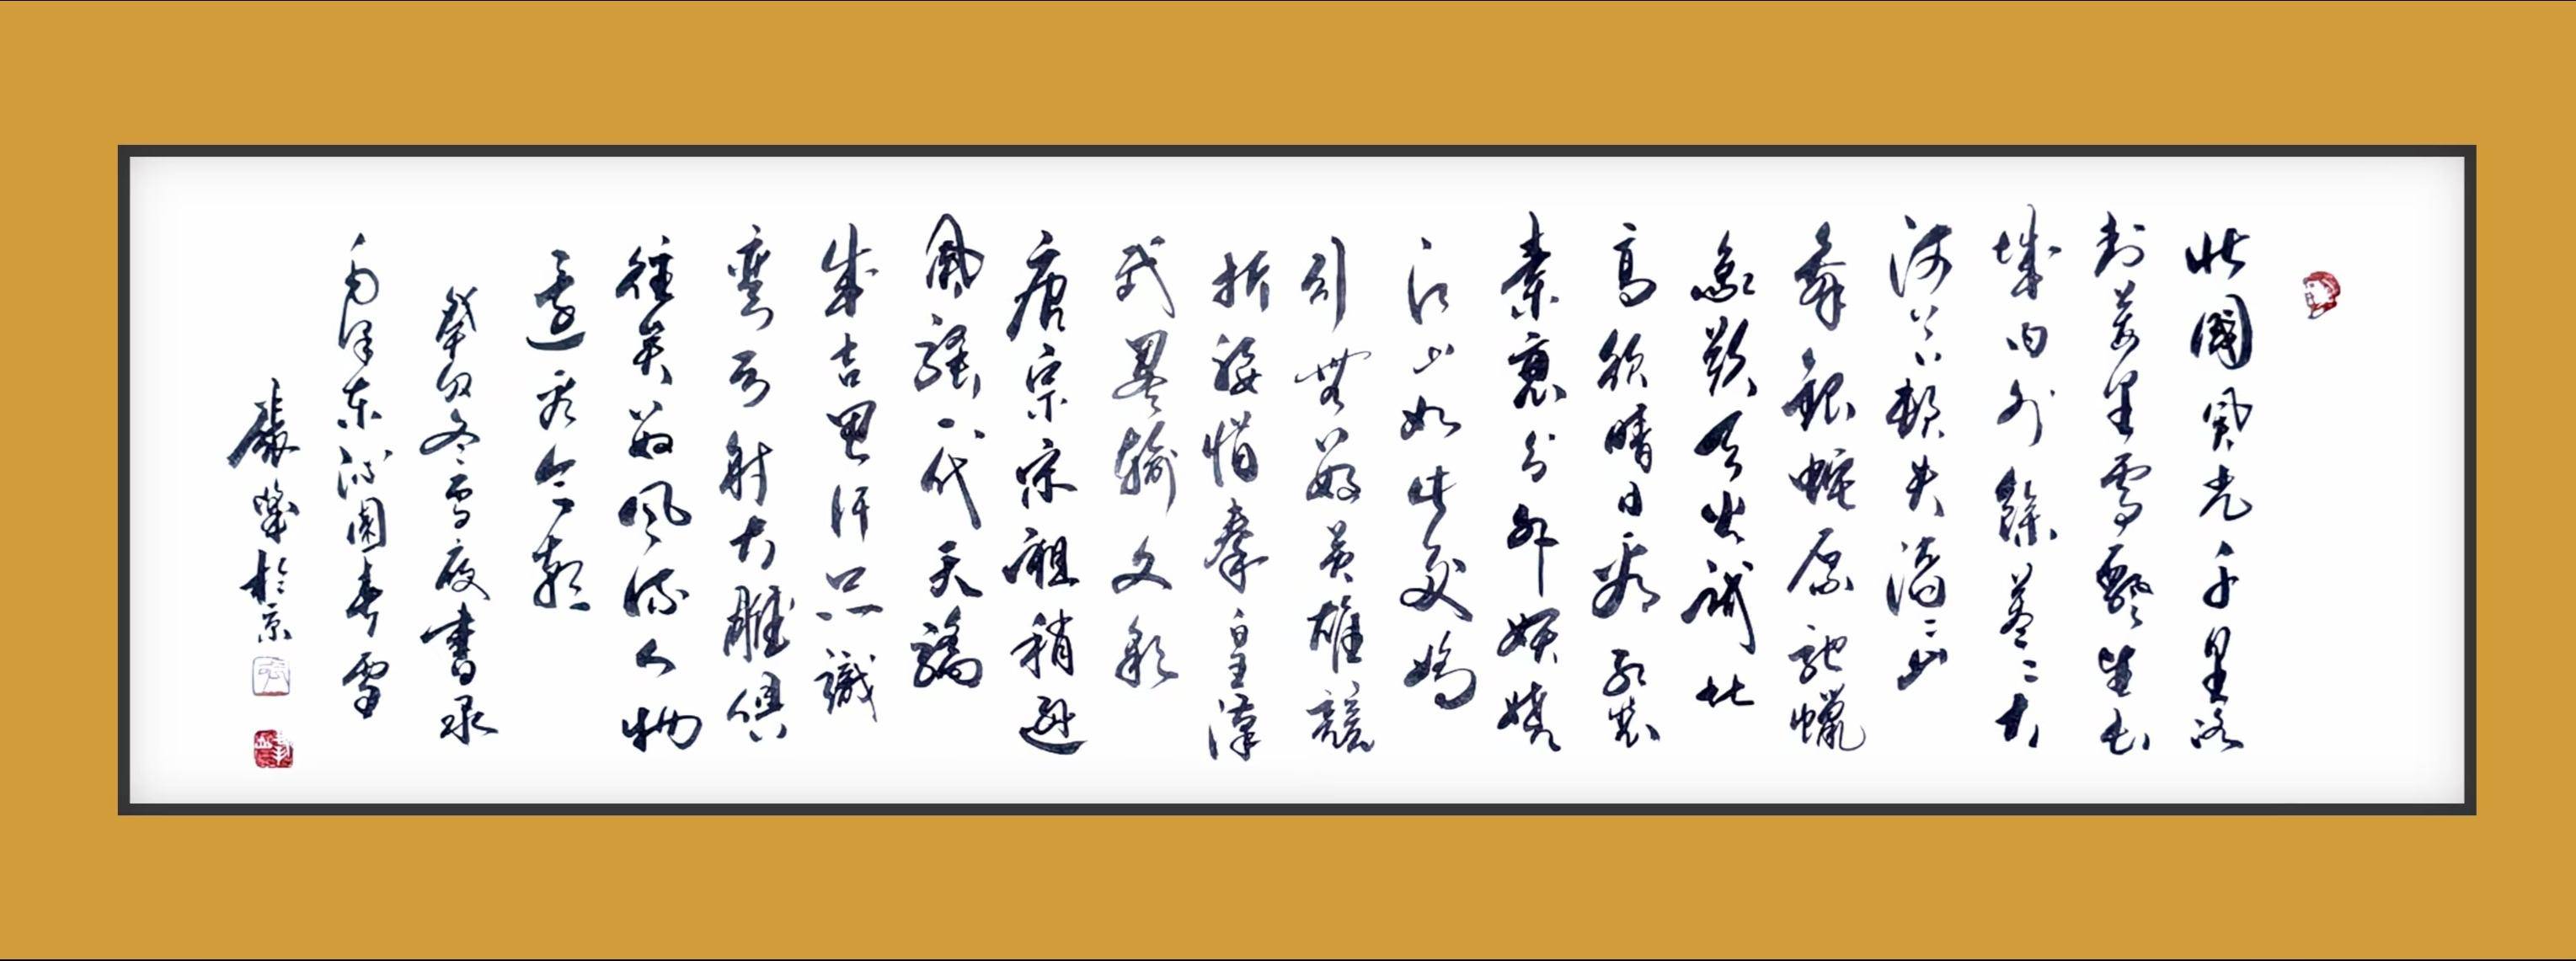 北國風光千里冰
封萬里雪飄望長
城内外餘莽〻大
河上下頓失滔〻山
舞銀蛇原馳蠟
象欲天公試比
高須晴日看紅裝
素裹分外妖嬈
江山如此多嬌
引無數英雄競
折腰惜秦皇漢
武畧輸文彩
唐宗宋祖稍遜
風騷一代天驕
成吉思汗只識
彎弓射大雕俱
往矣數風流人物
還看今朝
癸卯冬雪夜書录
毛澤东沁園春雪
張於京